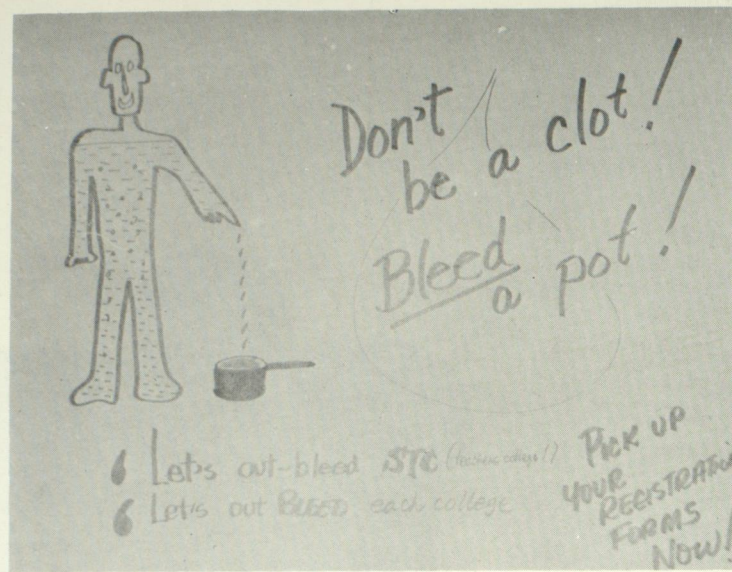 Don't
be a clot!
Bleed
a pot!
Let's out-bleed STC (teachers college!)
Let's out BLEED each college
PICK UP
YOUR
REGISTRATION
FORMS
NOW!